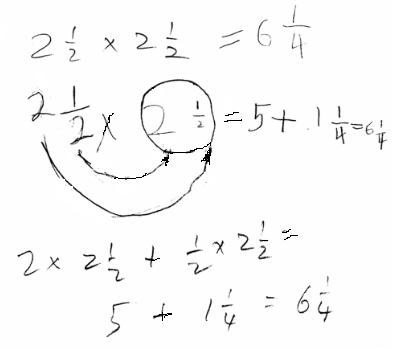 2 1/2 × 2 1/2 = 6 1/4
2 1/2 × 2 1/2 = 5 + 1 1/4 = 6 1/4
2 × 2 1/2 + 1/2 × 2 1/2 =
5 + 1 1/4 = 6 1/4